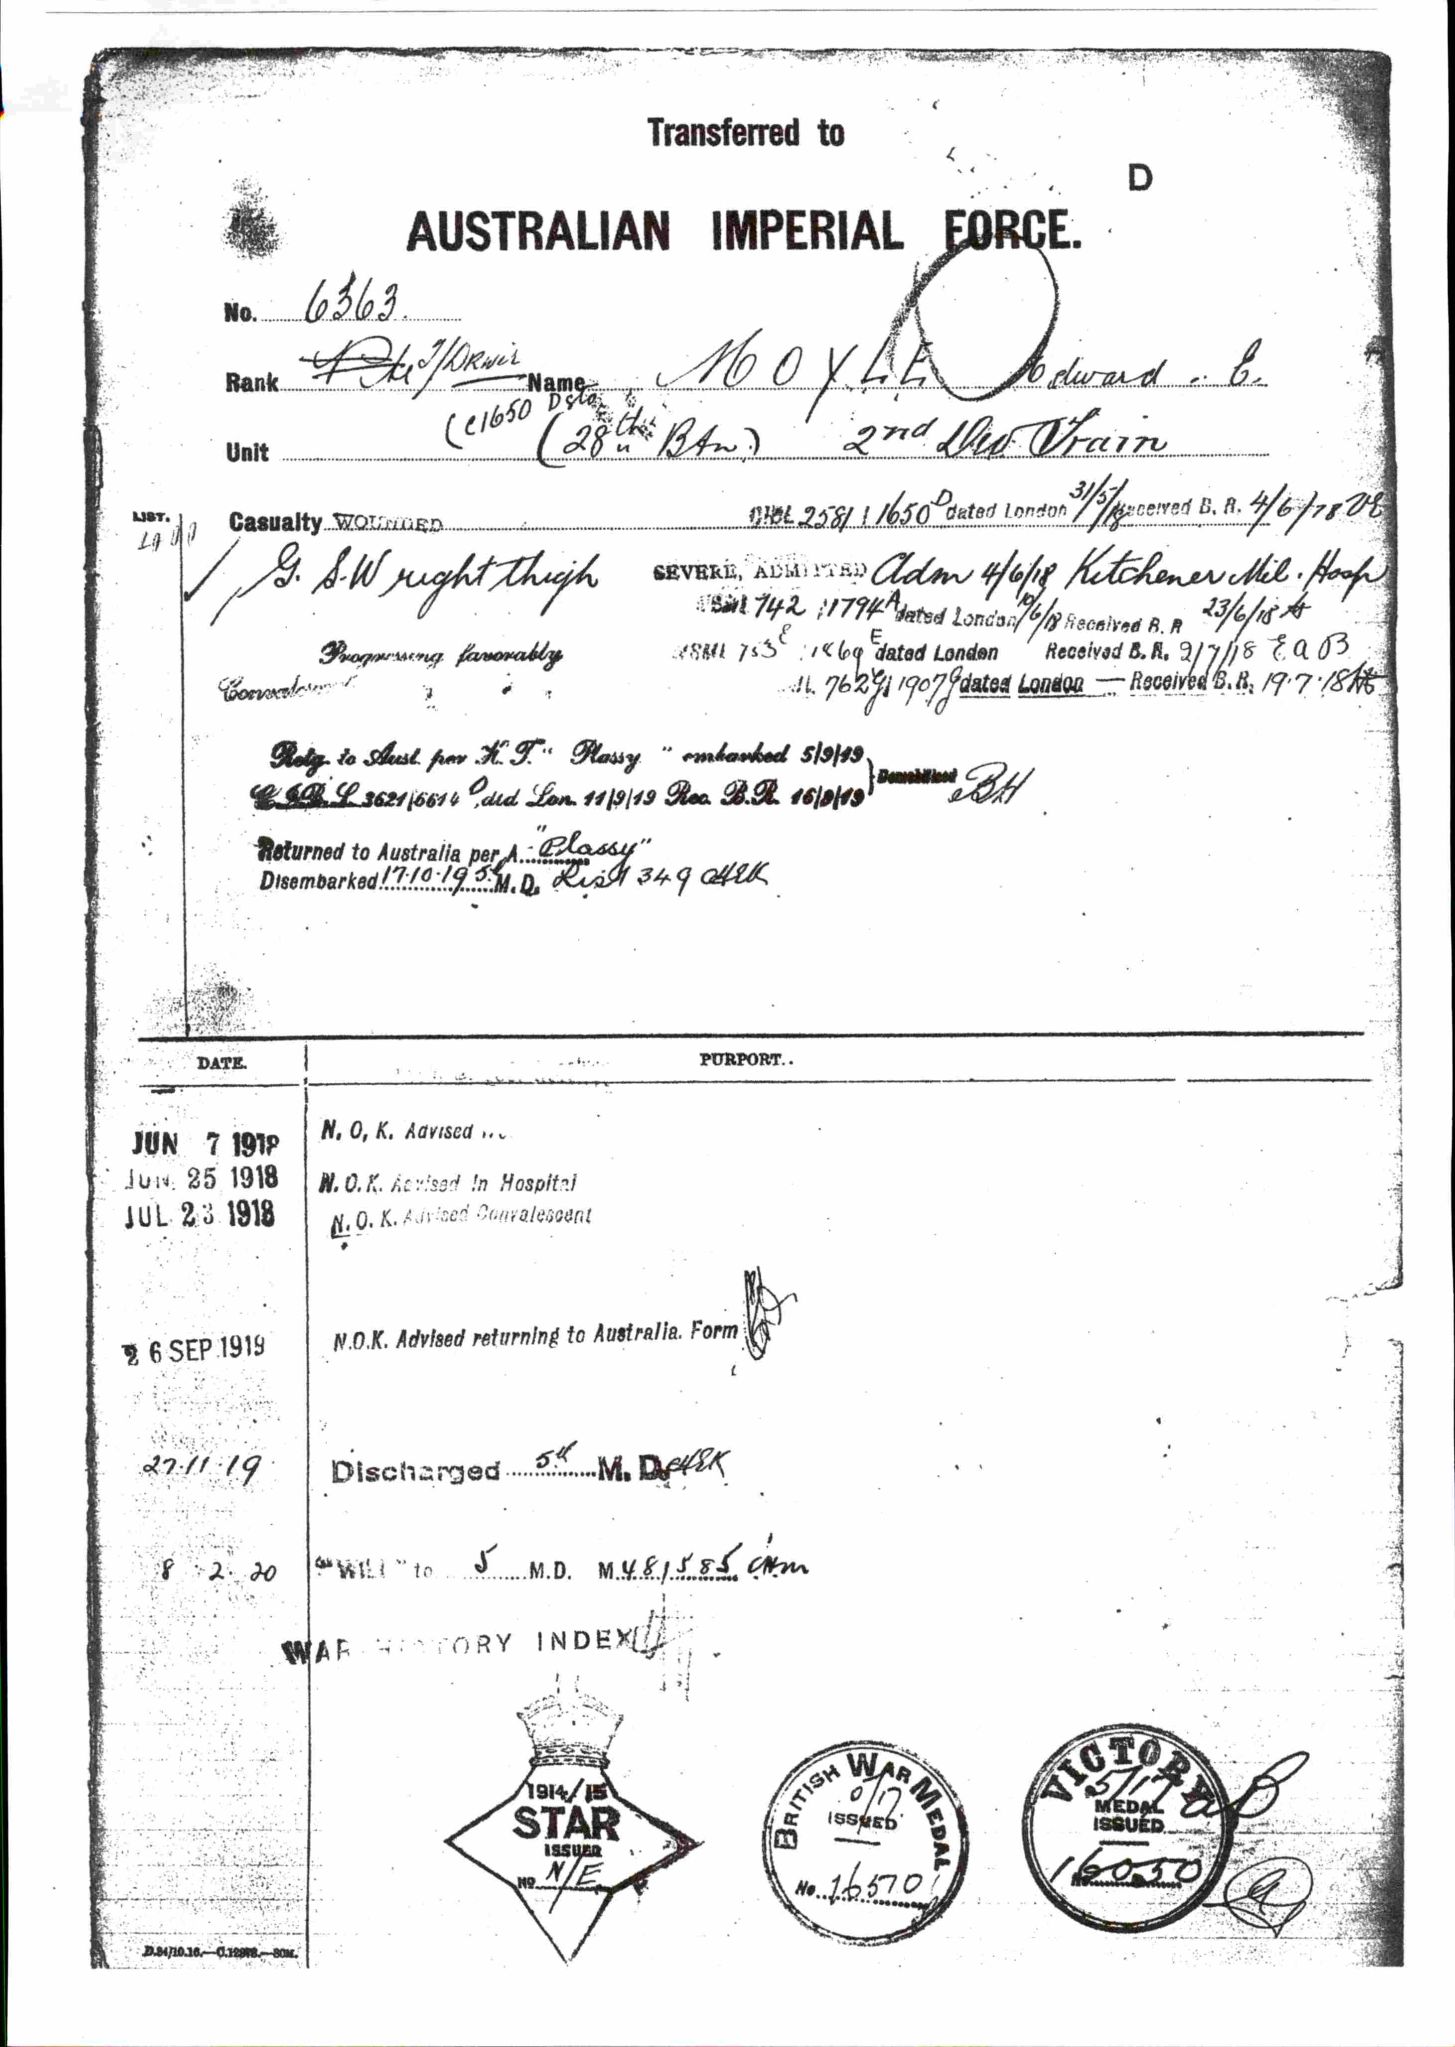 Transferred to
D
AUSTRALIAN IMPERIAL FORCE.
No. 6363.
Rank Pte T/Driver Name MOYLE Edward . E.
Unit (C1650 D (28th Btn) 2nd Div Train
LIST.
Casualty WOUNDED 2581 1650 D dated London 31/5/18 Received B. R. 4/6/18
G. S. W right thigh SEVERE, ADMITTED Adm 4/6/18 Kitchener Mil. Hosp
742 1794 A dated London 10/6/18 Received B. R 23/6/18
Progressing favorably E dated London Received B. R. 2/7/18 E a B
Convalescent 762 1907 dated London — Received B. R. 19.7.18
Retg. to Aust. per H. T. "Plassy" embarked 5/9/19
3621/6614 D, dtd Lon. 11/9/19 Rec. B. R. 16/9/19 BH
Returned to Australia per A. "Plassy"
Disembarked 17.10.19 5th M. D. List 349 AEK
DATE. PURPORT..
JUN 7 1918 N. O, K. Advised
JUN. 25 1918 N. O. K. Advised In Hospital
JUL 23 1918 N. O. K. Advised Convalescent
26 SEP 1919 N.O.K. Advised returning to Australia. Form
27.11.19 Discharged 5th M. D. AEK
8 . 2. 20 "WILL" to 5 M.D. M.481585
WAR HISTORY INDEX
1914/15
STAR
ISSUED
No N/E
BRITISH WAR MEDAL
ISSUED
No. 16570
VICTORY
5/17
MEDAL
ISSUED
No. 16050
D.84/10.16.—C.12878.—80M.